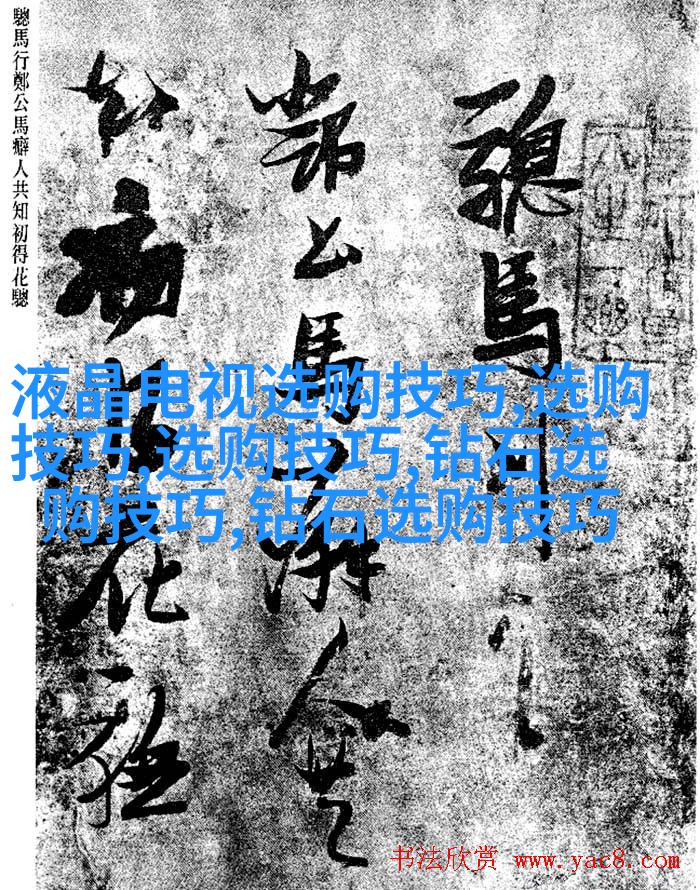 驄馬行鄭公馬癖人共知初得花驄
驄馬行
鄭公馬癖人共
知初得花驄
液晶电视选购技巧,选购
技巧,选购技巧,钻石选
购技巧,钻石选购技巧
书法欣赏 www.yac8.com